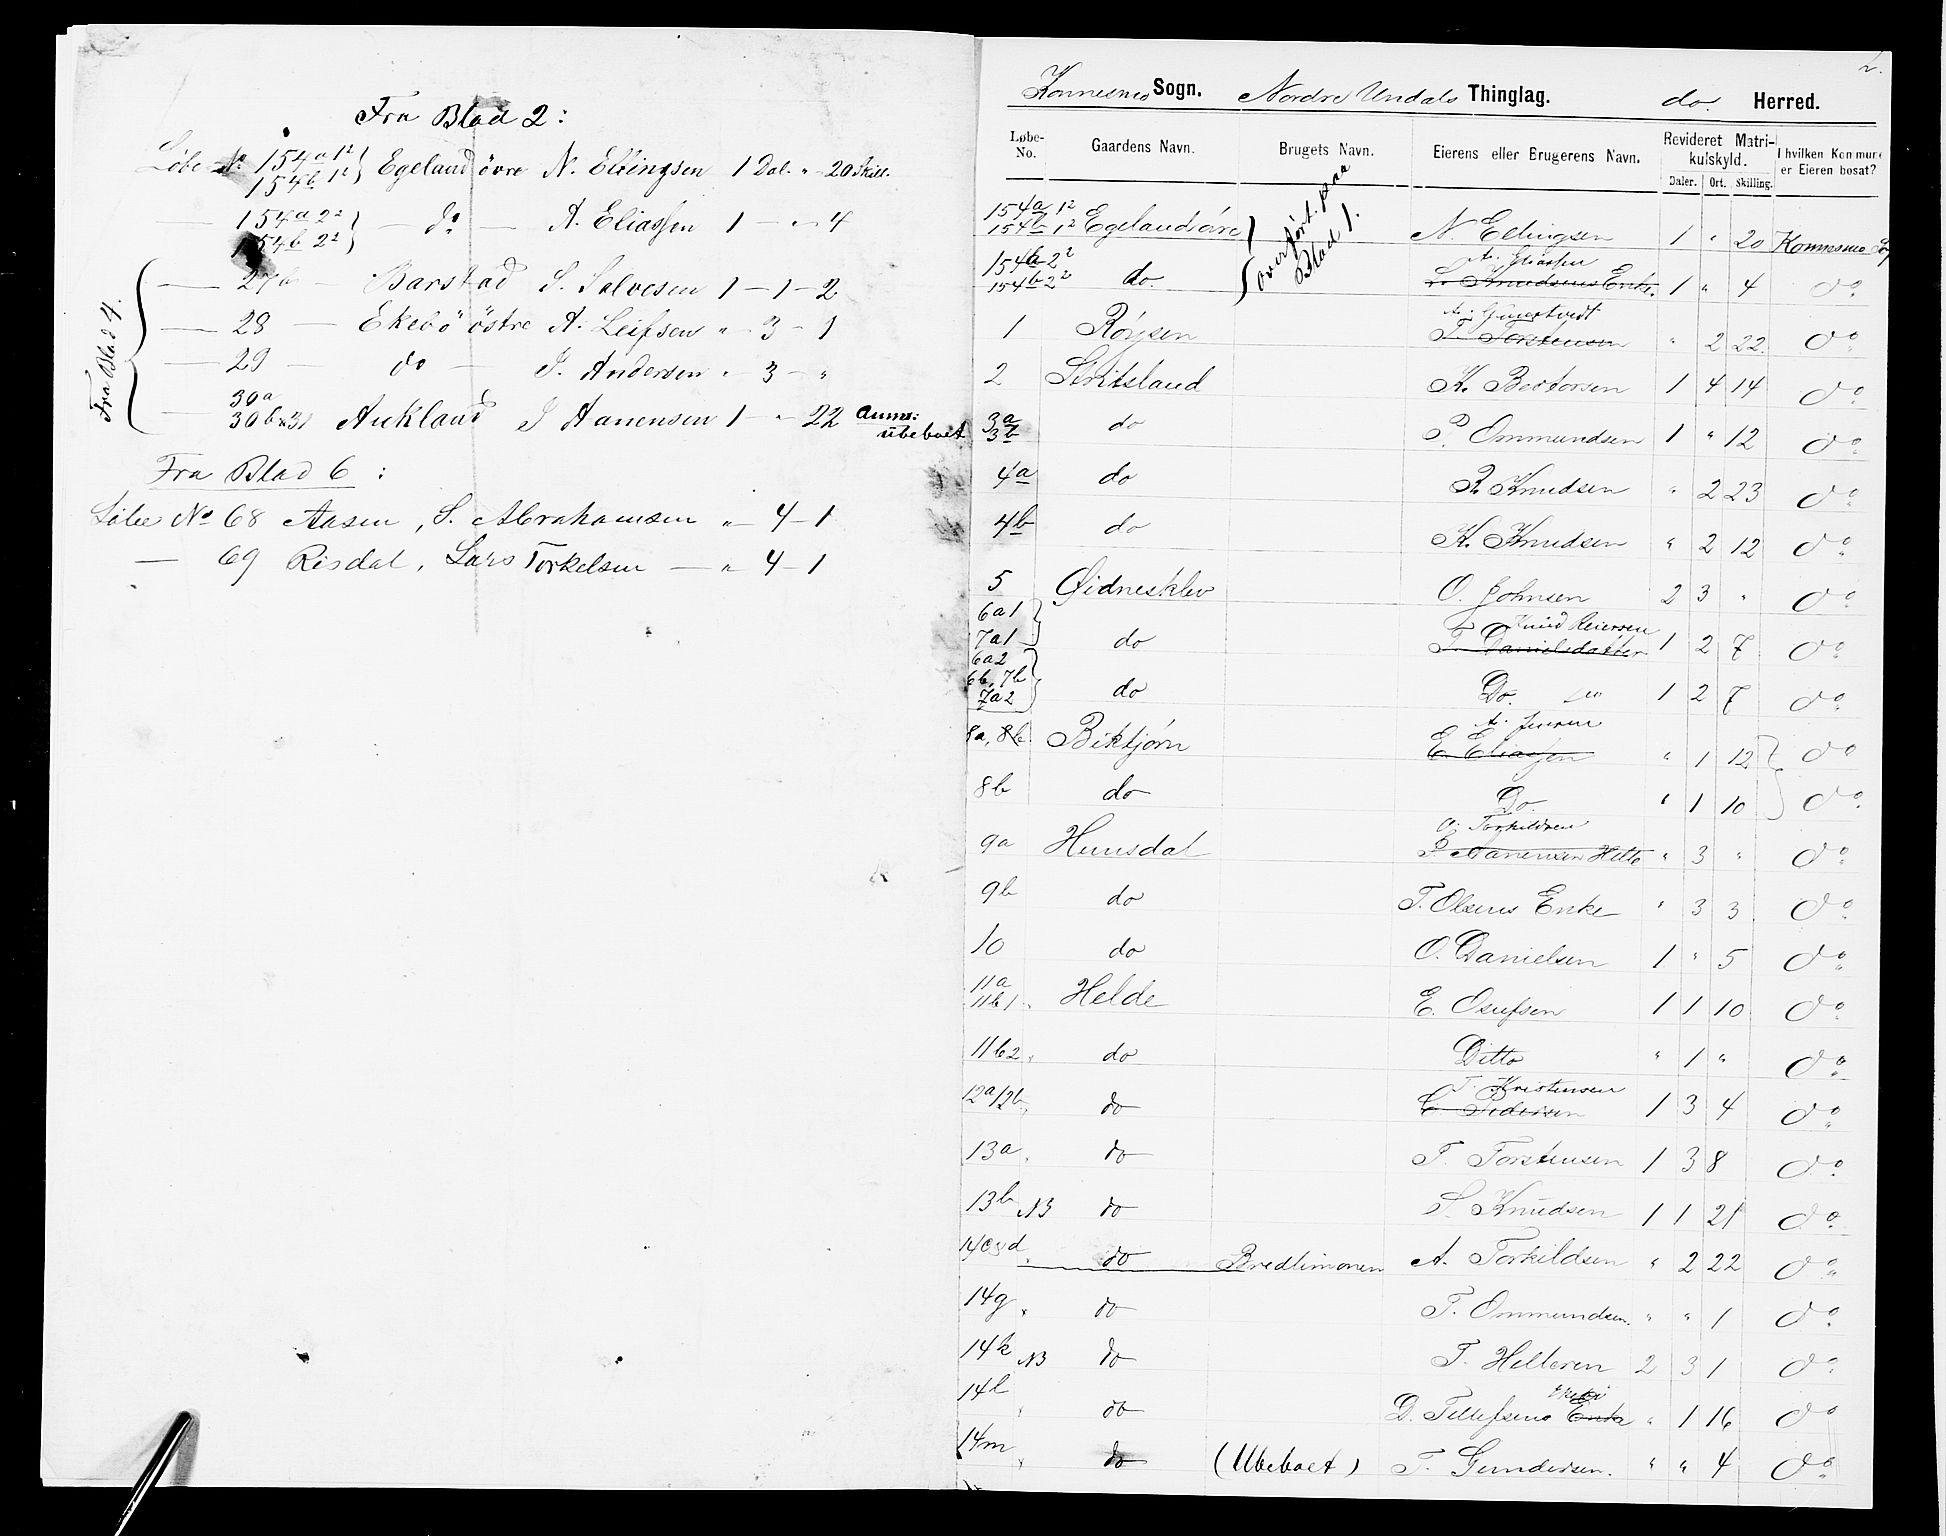 Fra Blad 2:
Løbe No 154a 1² } Egeland övre N. Ellingsen 1 Dal. " 20 Skill.
154b 1²
— 154a 2² } — do — A. Eliassen 1 — " 4
154b 2²
Fra Blad 4.
— 27b — Barstad S. Salvesen 1 – 1 – 2
— 28 — Ekebö östre A. Leifsen " 3 – 1
— 29 — do — J. Andersen " 3 – "
30a
— 30b & 31 Aukland J Aanensen 1 – " 22 Anm: ubeboet
Fra Blad 6 :
Løbe No 68 Aasen, S. Abrahamsen " 4 – 1
— 69 Risdal, Lars Torkelsen — " 4 – 1
2.
Konnesmo Sogn. Nordre Undals Thinglag. do Herred.
Løbe-No. Gaardens Navn. Brugets Navn. Eierens eller Brugerens Navn. Revideret Matrikulskyld. I hvilken Kommune er Eieren bosat?
Daler. Ort. Skilling.
overført paa Blad 1.
154a 1² 154b 1² Egeland övre N. Ellingsen 1 " 20 Konnesmo Sogn
A. Eliassen
154a 2² 154b 2² do. L. Knudsens Enke. 1 " 4 do
1 Röysen T. Torstensen " 2 22. do
2 Skritsland K. Bertorsen 1 4 14 do
3a 3b do P. Ommundsen 1 " 12 do
4a do R. Knudsen " 2 23 do
4b do K. Knudsen " 2 12 do
5 Øidnesklev O. Johnsen 2 3 " do
Knud Reiersen
6a1 7a1 } do T. Danielsdatter 1 2 7 do
6a2 6b, 7b 7a2 } do Do. 1 2 7 do
8a, 8b. Biktjørn E. Eliassen " 1 12 do
8b do Do. " 1 10 do
O. Torkildsen
9a Hunsdal P. Aanensen Helle " 3 " do
9b do T. Olsens Enke " 3 3 do
10 do O. Danielsen 1 " 5 do
11a 11b1 Helde E. Osufsen 1 1 10 do
11b2 do Ditto " 1 " do
T. Kristensen
12a 12b do C. Pedersen 1 3 4 do
13a do T. Torstensen 1 3 8 do
13b NB do S. Knudsen 1 1 21 do
14c&d do Bredlimonen A. Torkildsen " 2 22 do
14g do T. Ommundsen. " " 1 do
14k NB do T. Helleren 2 3 1 do
14l do D. Tellefsens Enke " 1 16 do
14m do (Ubeboet) T. Gundersen. " " 4 do